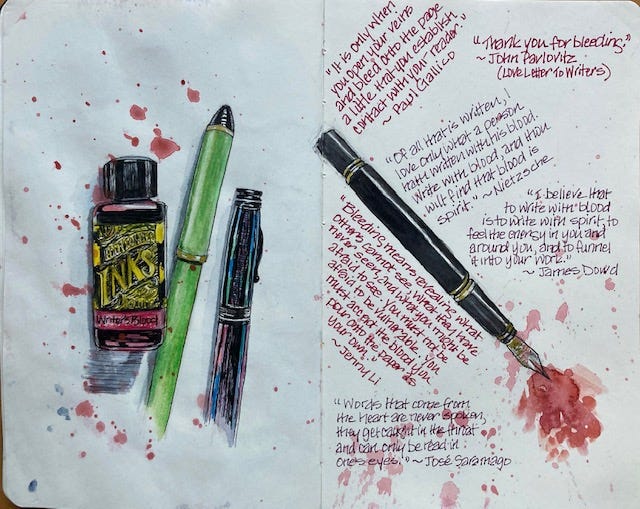 INKS
Writer's Blood
"It is only when
you open your veins
and bleed onto the page
a little that you establish
contact with your reader."
~ Paul Gallico
"Thank you for bleeding."
~ John Pavlovitz
(Love Letter To Writers)
"Of all that is written, I
love only what a person
hath written with his blood.
Write with blood, and thou
wilt find that blood is
spirit." ~ Nietzsche
"I believe that
to write with blood
is to write with spirit, to
feel the energy in you and
around you, and to funnel
it into your work."
~ James Dowd
"Bleeding means revealing what
others cannot see, what they have
never seen, and what you might be
afraid to see. You must not be
afraid to be vulnerable. You
must accept the blood you
pour onto the paper as
your own."
~ Jenny Li
"Words that come from
the heart are never spoken,
they get caught in the throat
and can only be read in
one's eyes." ~ José Saramago